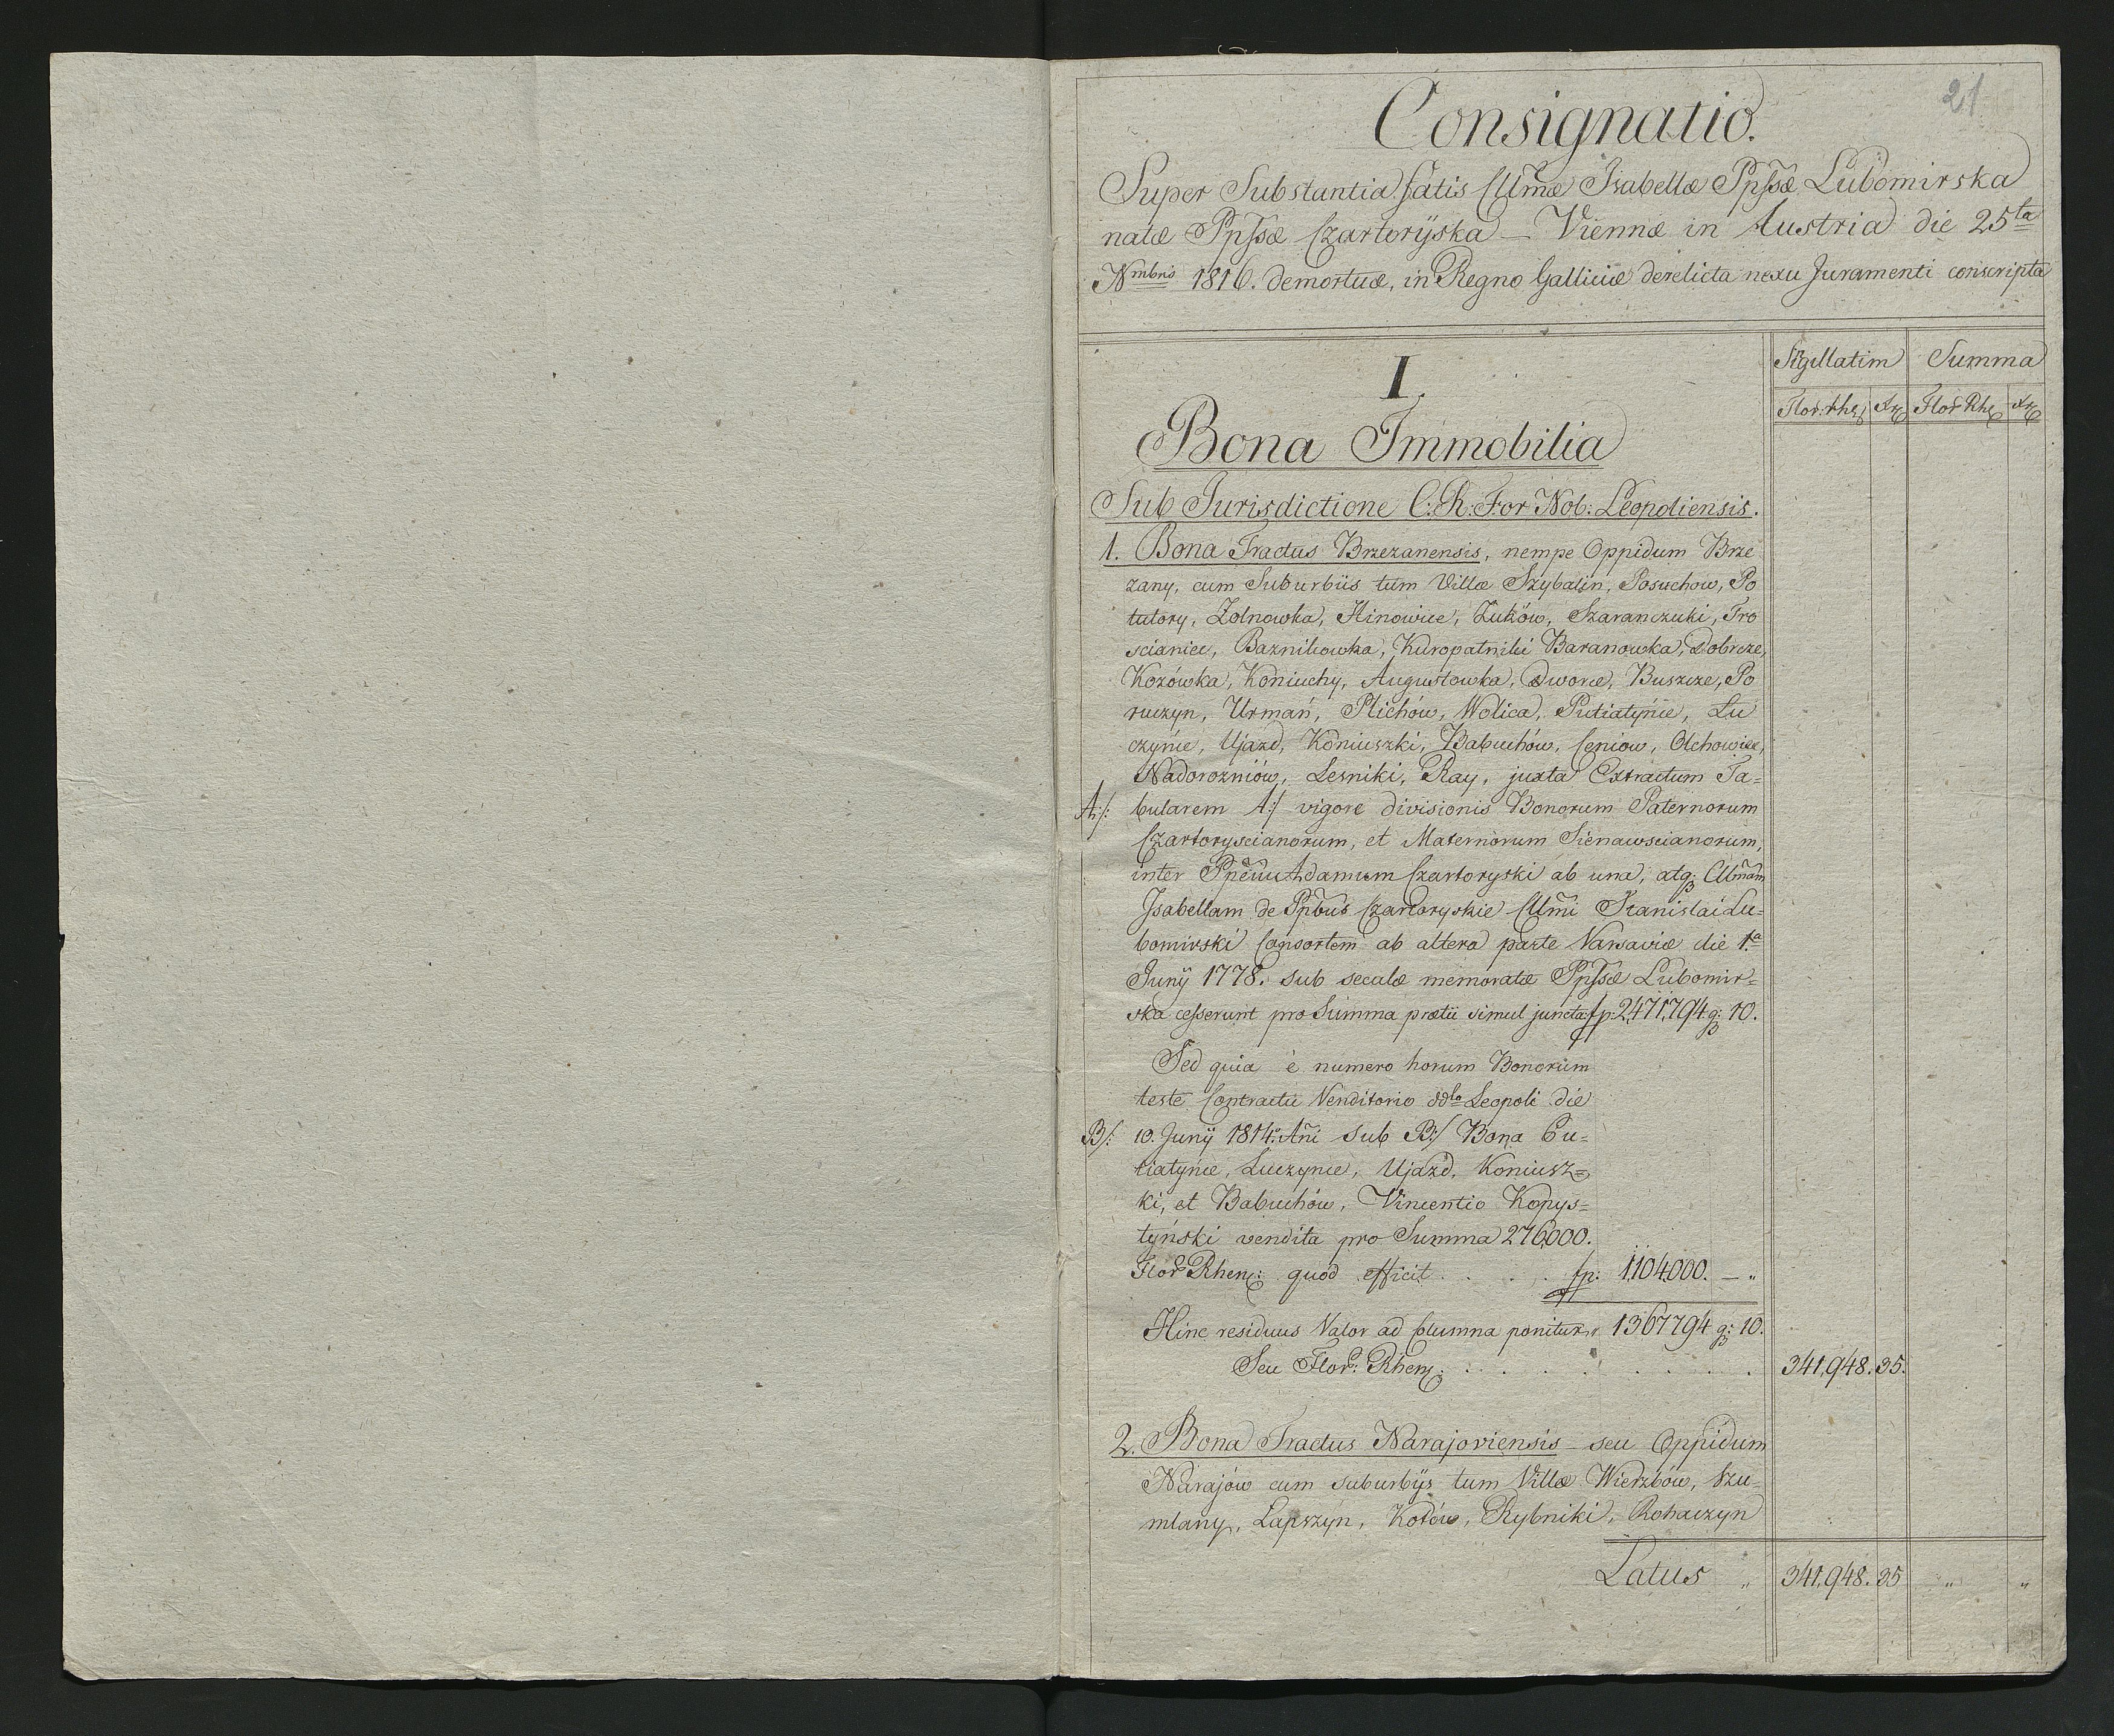 21
Consignatio.
Super Substantia fatis Cllmæ Isabellæ Ppssæ Lubomirska
natæ Ppssæ Czartoryska – Viennæ in Austria die 25ta
Nmbris 1816. demortuæ, in Regno Galliciæ derelicta nexu Juramenti conscripta
Sigillatim Summa
Flor: Rhe Xr Flor Rhe Xr
I.
Bona Immobilia
Sub Jurisdictione C: R: For Nob: Leopoliensis.
1. Bona Tractus Brzezanensis, nempe Oppidum Brze
zany, cum Suburbiis tum Villæ Szybalin, Posuchow, Po
tutory, Zolnowka, Hinowice, Zuków, Szaranczuki, Tro
scianiec, Baznikowka, Kuropatniki Baranowka, Dobrcze,
Kozówka, Koniuchy, Augustowka, Dworce, Buszcze, Po
ruczyn, Urmań, Plichów, Wolica, Putiatyńce, Lu
czyńce, Ujazd, Koniuszki, Babuchów, Ceniow, Olchowiec,
Nadorozniów, Lesniki, Ray, juxta Extractum Ta=
A:/: bularem A:/ vigore divisionis Bonorum Paternorum
Czartoryscianorum, et Maternorum Sienawscianorum,
inter Ppem Adamum Czartoryski ab una, atq; Cllmam
Isabellam de Ppbus Czartoryskie Cllmi Stanislai Lu=
bomirski Consortem ab altera parte Varsaviæ die 1.a
Junÿ 1778. sub secula memoratæ Ppssæ Lubomir=
ska cesserunt pro Summa prætii simul juncta fp: 2,471,794 g: 10.
Sed quia è numero horum Bonorum
teste Contractu Venditorio ddto Leopoli die
B/: 10. Junÿ 1814. Ani sub B:/ Bona Pu=
tiatyńce, Luczynce, Ujazd, Koniusz=
ki, et Babuchów, Vincentio Kopys=
tyński vendita pro Summa 276,000.
Flor Rhen: quod efficit . . . . fp: 1,104,000. – "
Hinc residuus Valor ad Columna ponitur " 1367794 g: 10.
Seu Flor: Rhen: . . . . . . . . 341,948. 35.
2. Bona Tractus Narajoviensis – seu Oppidum
Narajów cum suburbÿs tum Villæ Wierzbów, Szu=
mlany, Lapszyn, Kotów, Rybniki, Rohaczyn
Latus " 341,948. 35 " "